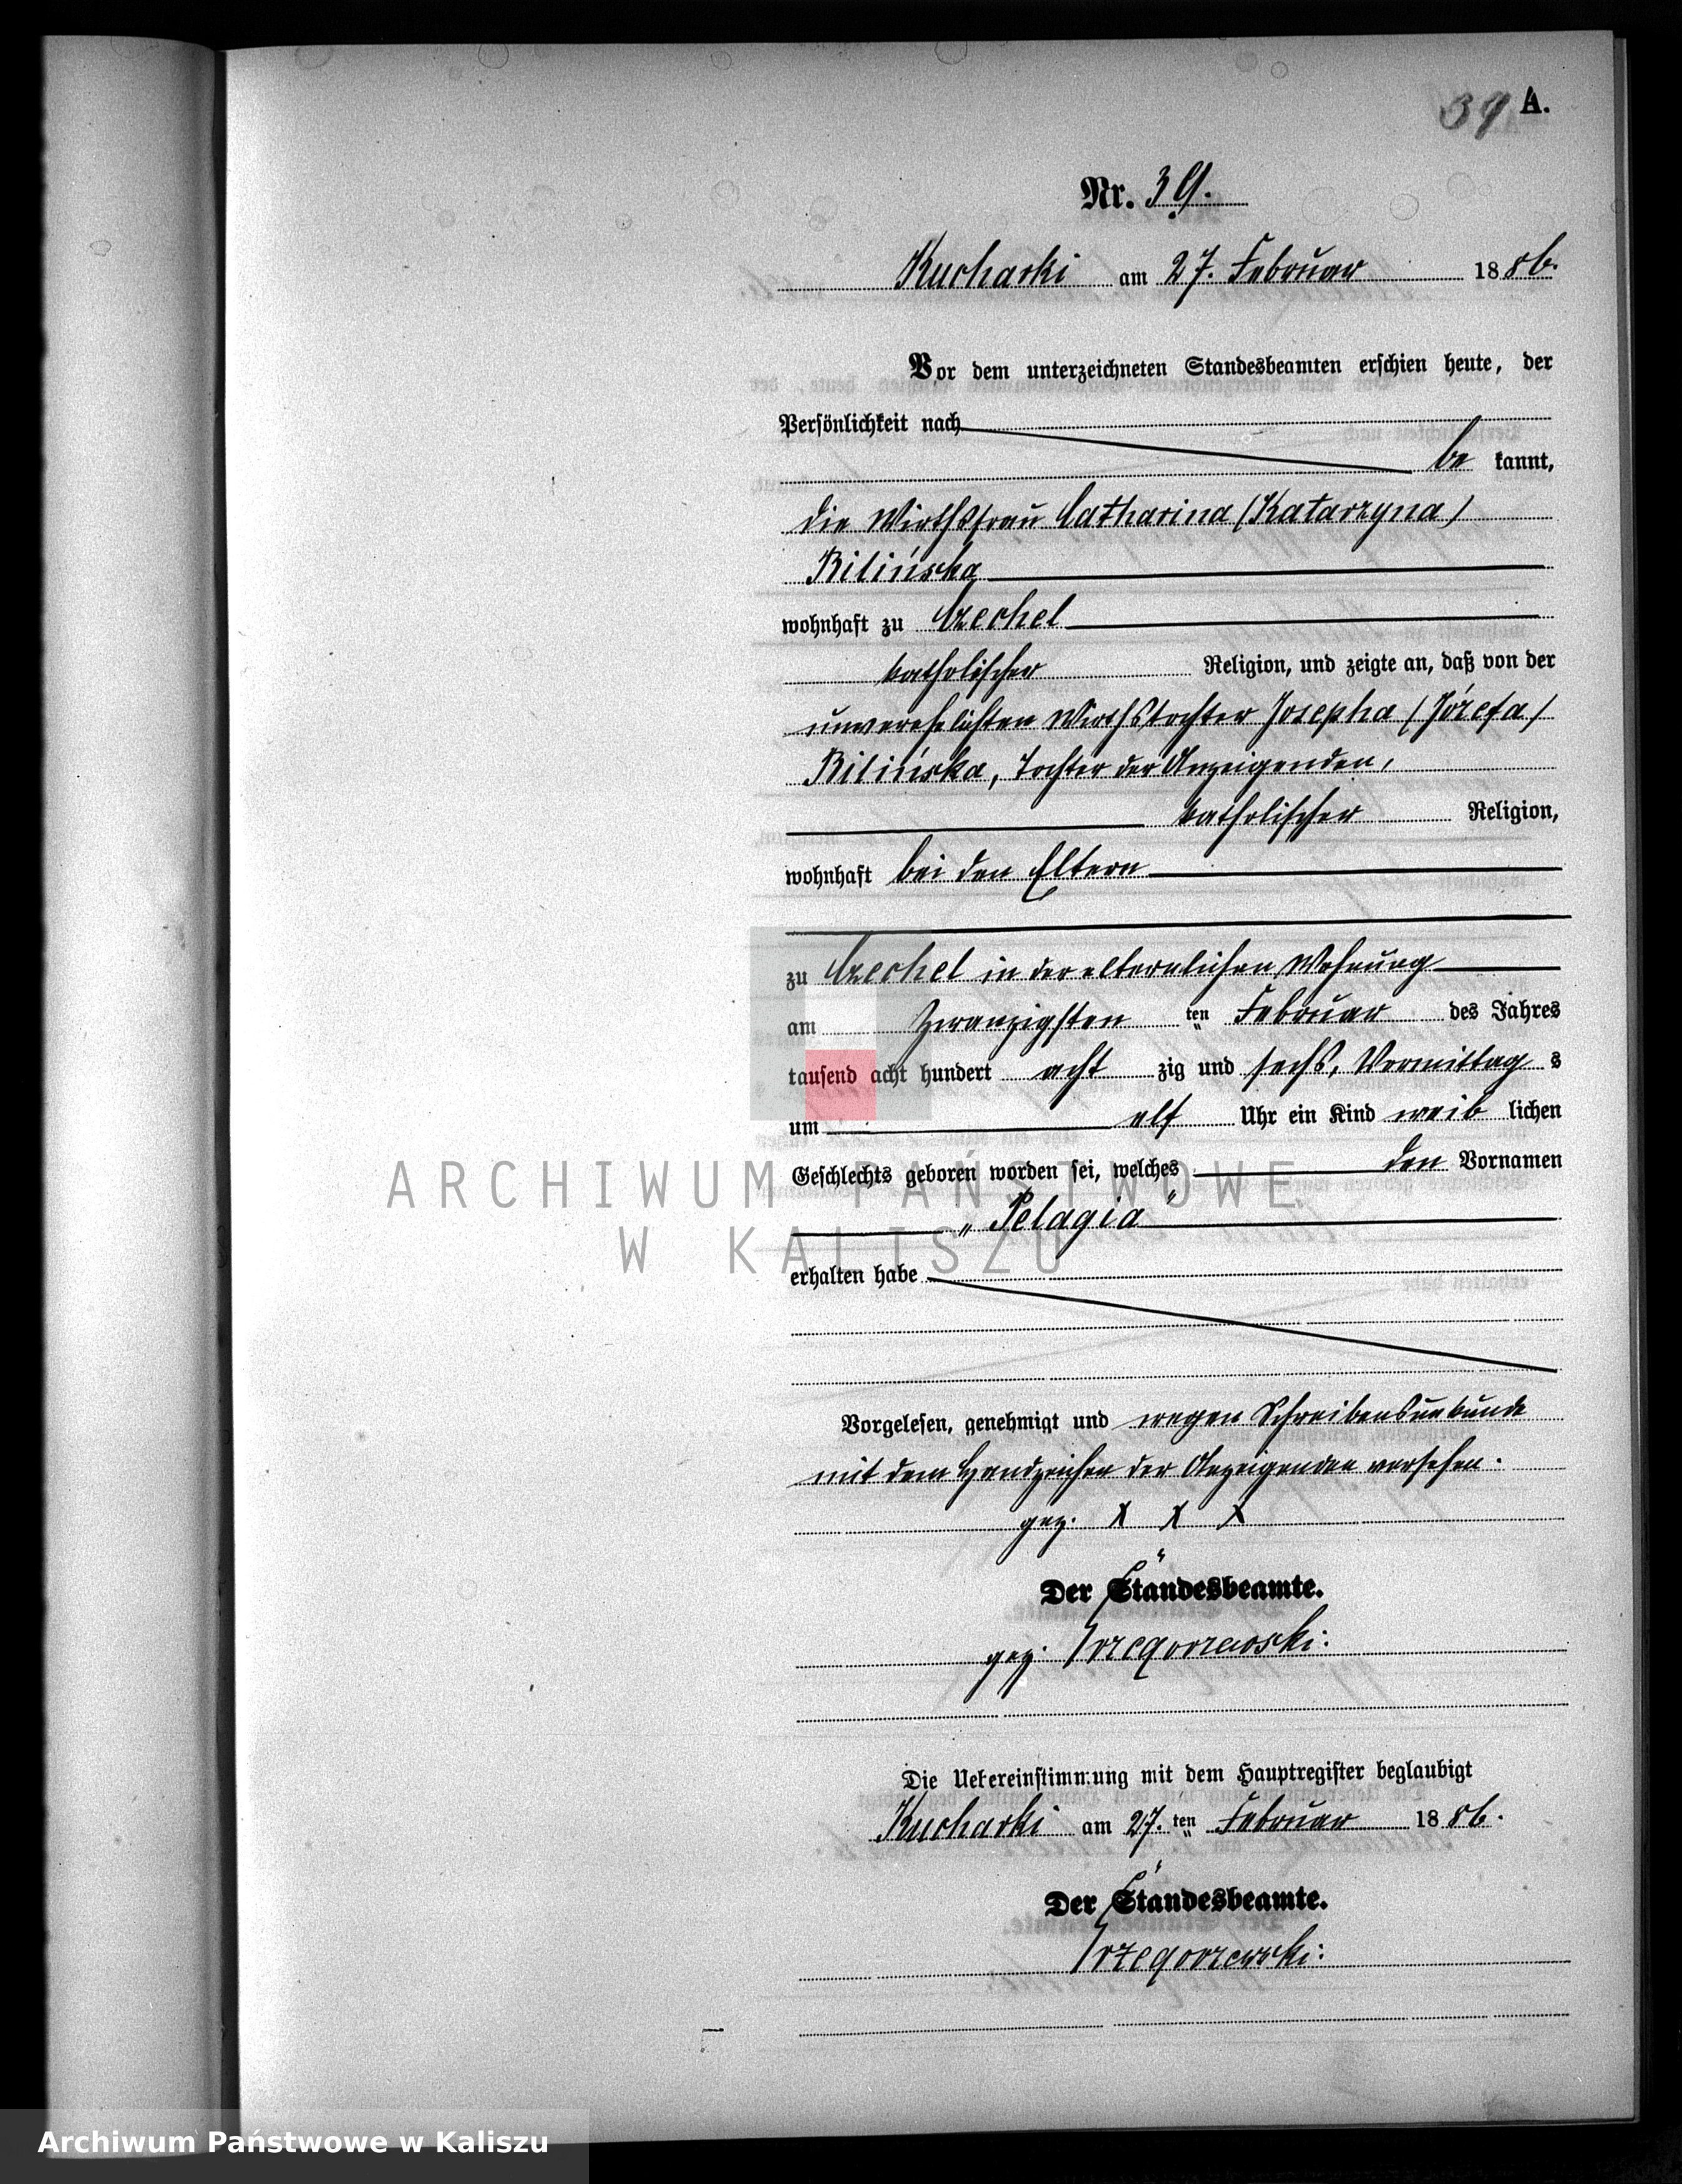 39 A.
Nr. 39.
Kucharki am 27. Februar 1886.
Vor dem unterzeichneten Standesbeamten erschien heute, der
Persönlichkeit nach
be kannt,
die Wirthsfrau Catharina (Katarzyna)
Bilińska
wohnhaft zu Czechel
katholischer Religion, und zeigte an, daß von der
unverehelichten Wirthstochter Josepha (Józefa)
Bilińska, Tochter der Anzeigenden,
katholischer Religion,
wohnhaft bei den Eltern
zu Czechel in der elternlichen Wohnung
am zwanzigsten ten Februar des Jahres
tausend acht hundert acht zig und sechs, Vormittag s
um elf Uhr ein Kind weib lichen
Geschlechts geboren worden sei, welches den Vornamen
„Pelagia"
erhalten habe
Vorgelesen, genehmigt und wegen Schreibensunkunde
mit dem Handzeichen der Anzeigenden versehen.
gez. X X X
Der Standesbeamte.
gez. Grzegorzewski.
Die Uebereinstimmung mit dem Hauptregister beglaubigt
Kucharki am 27. ten Februar 1886.
Der Standesbeamte.
Grzegorzewski.
ARCHIWUM PAŃSTWOWE
W KALISZU
Archiwum Państwowe w Kaliszu